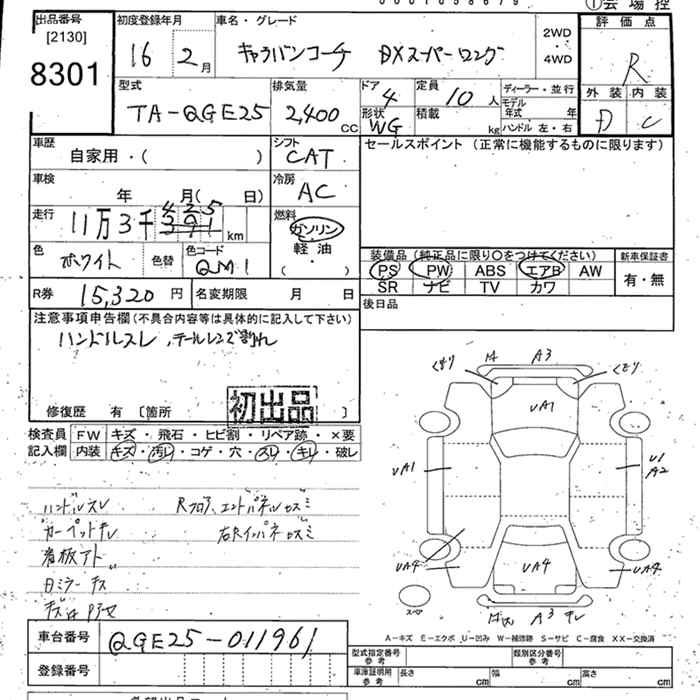 出品番号 [2130] 8301
初度登録年月 16 2月
車名・グレード キャラバンコーチ DXスーパーロング 2WD・4WD
①会場控
評価点 R
外装 D 内装 C
型式 TA-QGE25
排気量 2,400 cc
ドア 4 形状 WG
定員 10人 積載 kg
ディーラー・並行 モデル年式 年 ハンドル 左・右
車歴 自家用・( )
シフト CAT
セールスポイント (正常に機能するものに限ります)
車検 年 月( 日)
冷房 AC
走行 11万3千 425 391 km
燃料 ガソリン 軽油・( )
色 ホワイト 色替 色コード QM1
装備品 (純正品に限り○をつけてください) 新車保証書
PS PW ABS エアB AW 有・無
SR ナビ TV カワ
R券 15,320円 名変期限 月 日
後日品
注意事項申告欄(不具合内容等は具体的に記入して下さい)
ハンドルスレ,テールレンズ割れ
修復歴 有 [箇所 ]
初出品
検査員 FW キズ・飛石・ヒビ割・リペア跡・×要
記入欄 内装 キズ・汚レ・コゲ・穴・スレ・キレ・破レ
くもり A3 くもり
UA1
UA1 U1 A2
UA4 UA4 UA4
スペア A3 キレ
ハンドルスレ
カーペットキレ
看板アト
A-キズ E-エクボ U-凹み W-補修跡 S-サビ C-腐食 XX-交換済
車台番号 QGE25-011961
登録番号
型式指定番号 参考 類別区分番号 参考
車庫証明用 参考 長さ cm 幅 cm 高さ cm